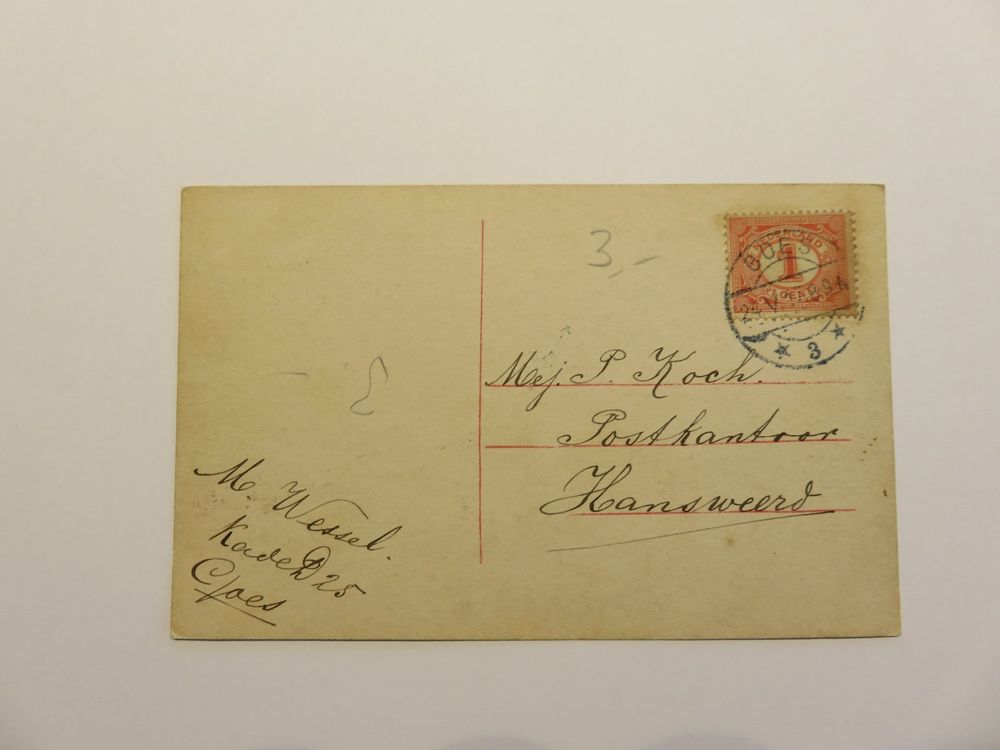 3,-
NEDERLAND
1
GOES
3
Mej. P. Koch.
Postkantoor
Hansweerd
M. Wessel.
Kade D 25
Goes